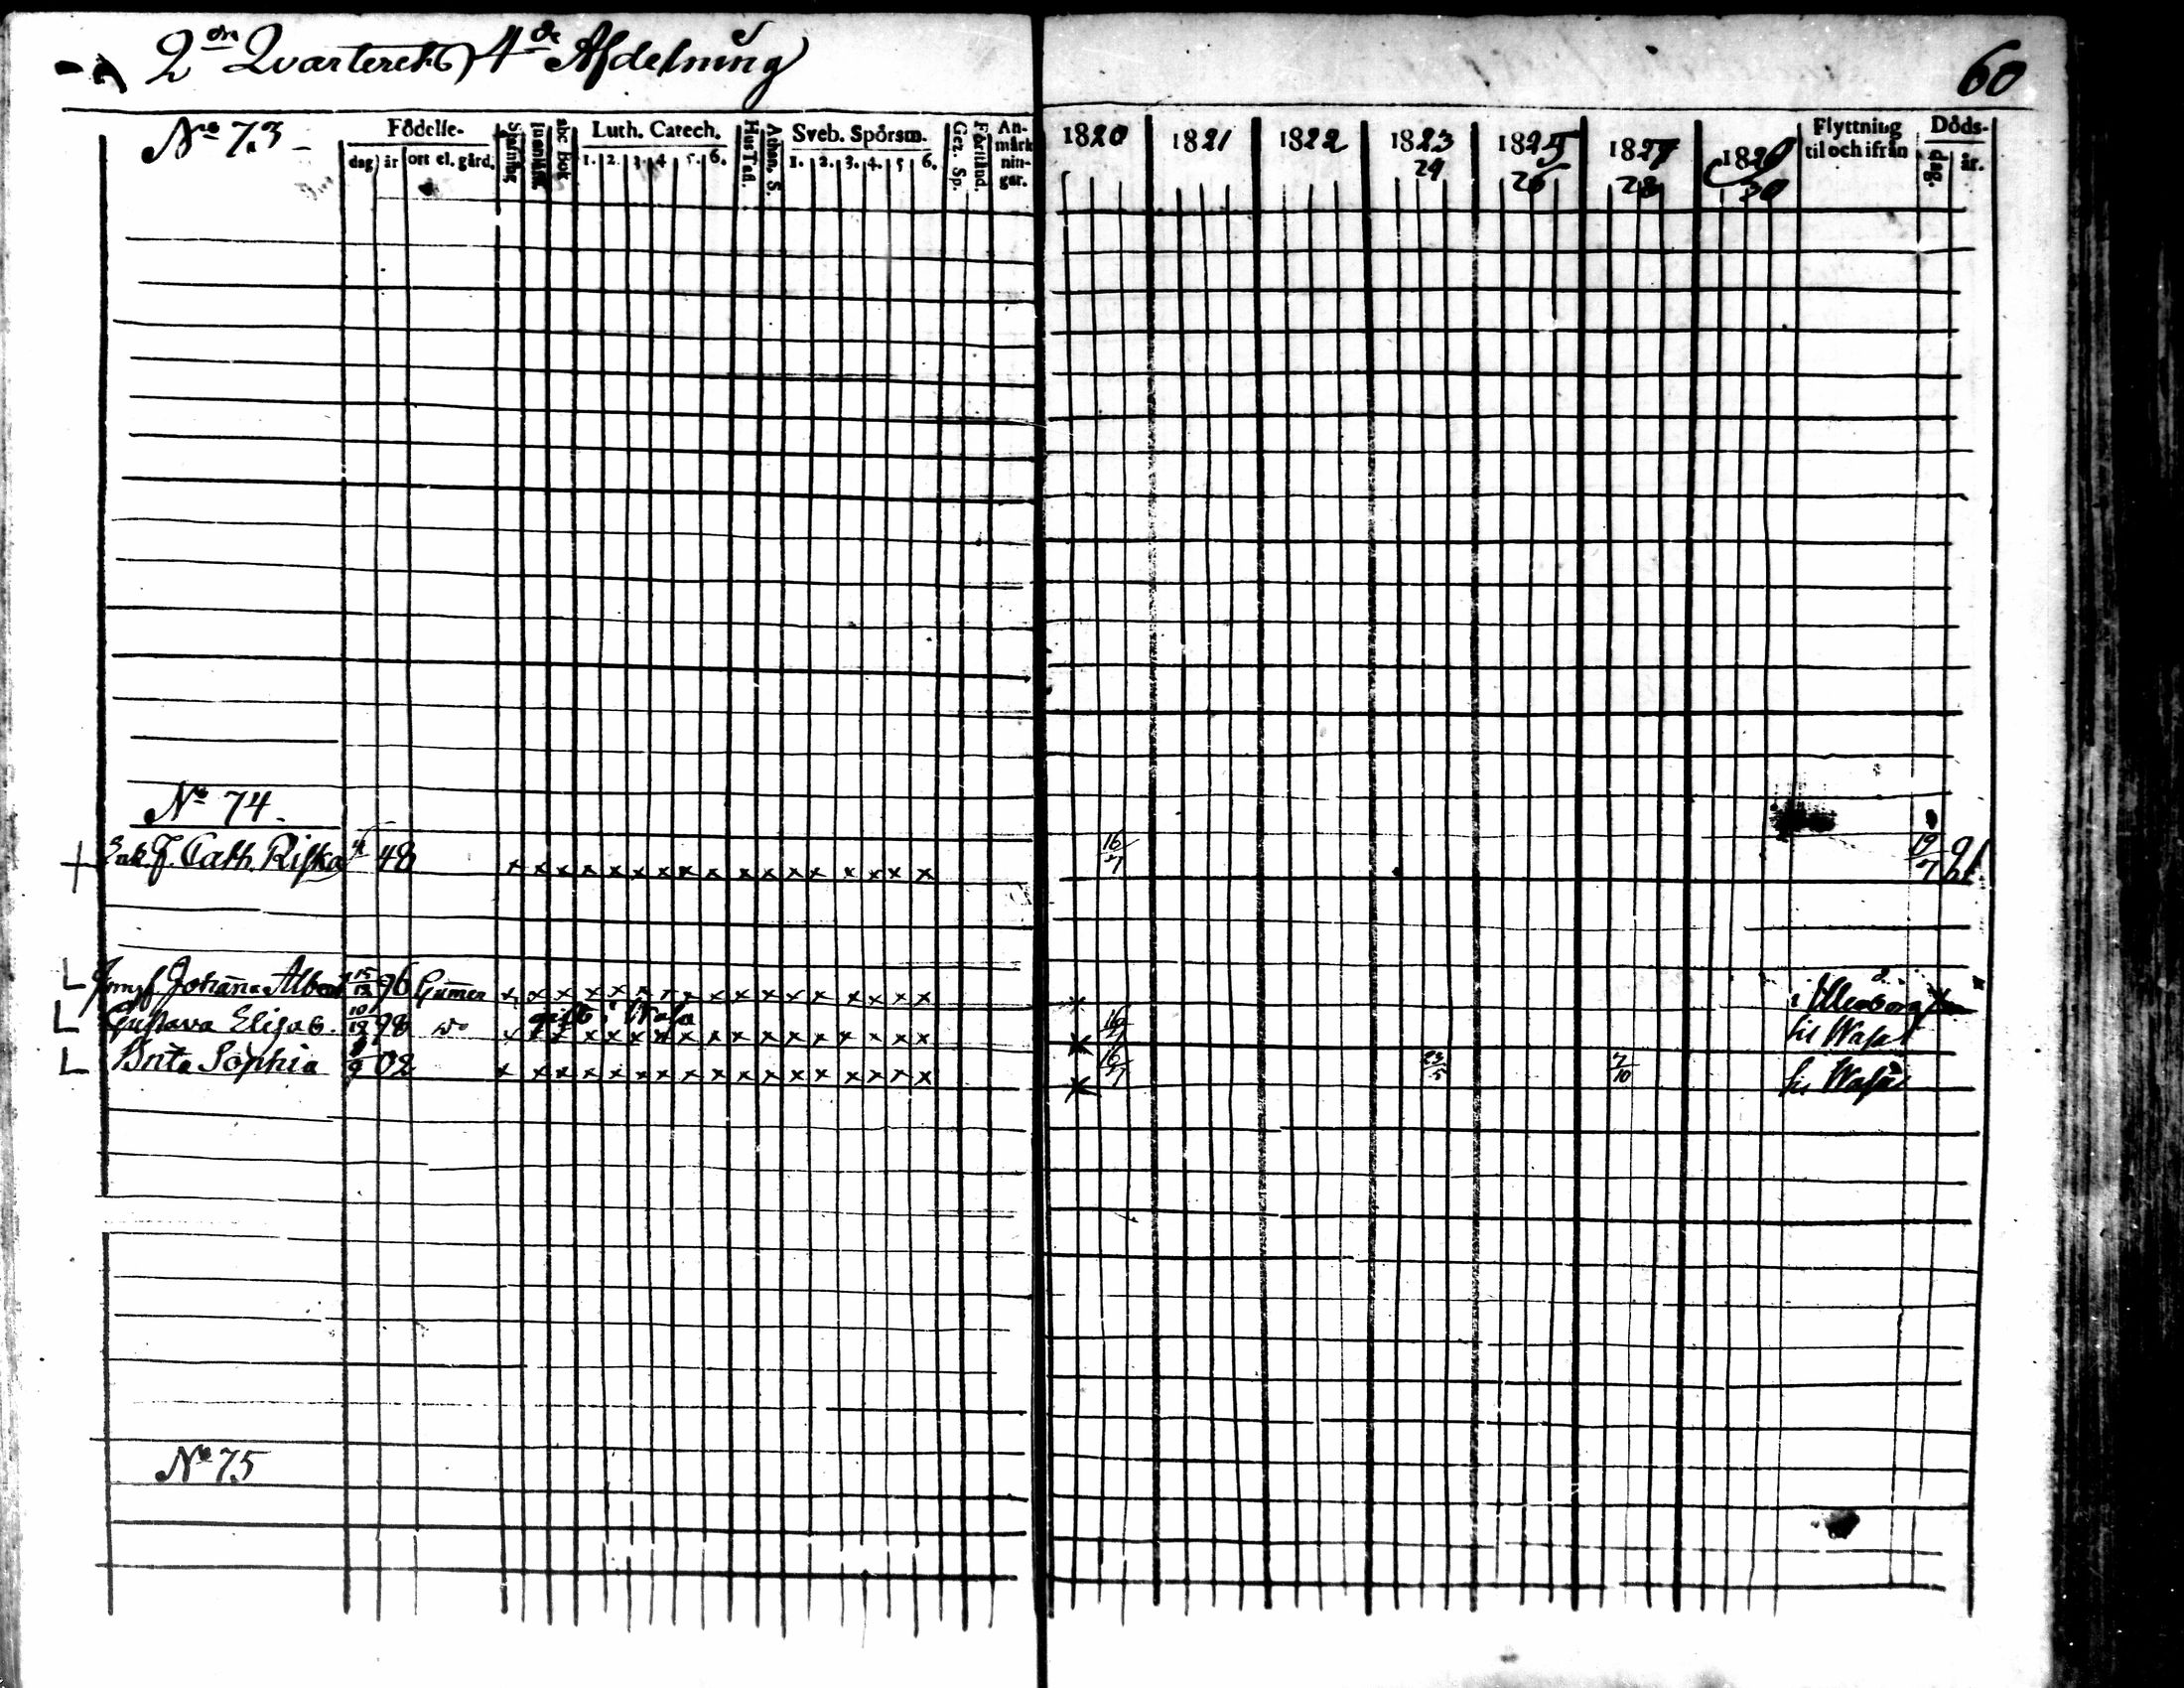 2dra Qvarteret 4de Afdelning
60
No 73
Födelse-
dag år ort el. gård.
Skrifning
abc Bok
Luth. Catech.
1. 2. 3. 4 5. 6.
Hus Tafl.
Athan. S.
Sveb. Spörsm.
1. 2. 3. 4. 5 6.
Gez. Sp.
An-
märk
nin-
gar.
1820 1821 1822 1823 24 1825 26 1827 28 1829 30
Flyttning
til och ifrån
Döds-
dag. år.
No 74
Enk. F. Cath. Riska 48 x x x x x x x x x x x x x x x x x 16/7 19/7 21
Jomf. Johanna 15/12 96 Gumer x x x x x x x x x x x x x x x x x x i Uleåborg
gift i Wasa
Gustava Elisab. 10/12 98 do x x x x x x x x x x x x x x x x x x 16/7 til Wasa
Brita Sophia 02 x x x x x x x x x x x x x x x x x x 16/7 23/5 7/10 til Wasa
No 75